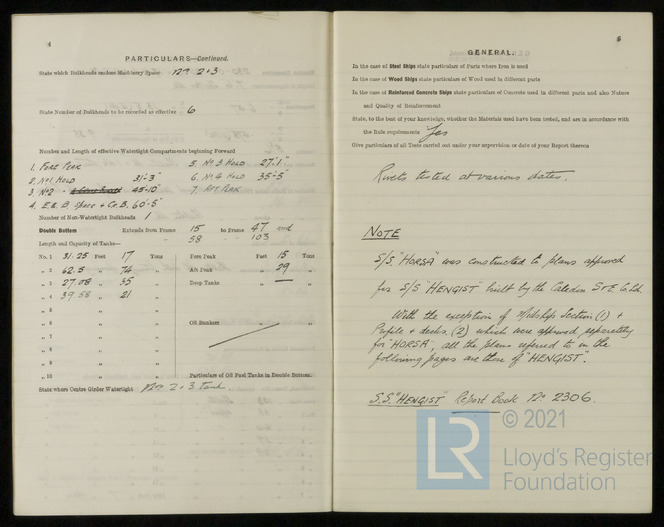 4
PARTICULARS—Continued.
State which Bulkheads enclose Machinery Space Nos 2+3
State Number of Bulkheads to be recorded as effective 6
Number and Length of effective Watertight Compartments beginning Forward
1. FORE PEAK
2. No 1 HOLD 31'-3"
3. No 2 " 45-10"
4. E & B Space + Co. B. 60'-5"
5. No 3 HOLD 27'1"
6. No 4 HOLD 35'-5"
7. AFT PEAK
Number of Non-Watertight Bulkheads 1
Double Bottom Extends from Frame 15 to Frame 47 and
" 58 " 103
Length and Capacity of Tanks—
No. 1 31.25 Feet 17 Tons Fore Peak Feet 15 Tons
" 2 62.5 " 74 " Aft Peak " 29 "
" 3 27.08 " 35 " Deep Tanks " — "
" 4 39.58 " 21 "
" 5 " "
" 6 " " Oil Bunkers " "
" 7 " "
" 8 " "
" 9 " "
" 10 " " Particulars of Oil Fuel Tanks in Double Bottom.
State where Centre Girder Watertight No 2+3 Tank.
5
GENERAL.
In the case of Steel Ships state particulars of Parts where Iron is used
In the case of Wood Ships state particulars of Wood used in different parts
In the case of Reinforced Concrete Ships state particulars of Concrete used in different parts and also Nature
and Quality of Reinforcement
State, to the best of your knowledge, whether the Materials used have been tested, and are in accordance with
the Rule requirements Yes
Give particulars of all Tests carried out under your supervision or date of your Report thereon
Rivets tested at various dates.
NOTE
S/S "HORSA" was constructed to plans approved
for S/S "HENGIST" built by the Caledon S & E. Co. Ld.
With the exception of Midship Section (1) +
Profile + decks. (2) which were approved, separately
for "HORSA", all the plans referred to in the
following pages are those of "HENGIST".
S.S. "HENGIST" Report Book No 2306.
© 2021
LR
Lloyd's Register
Foundation